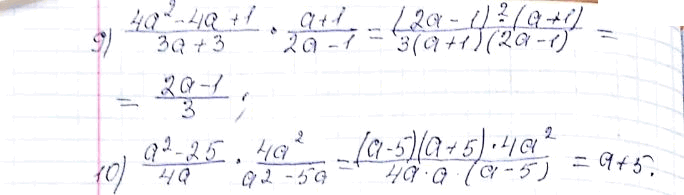 9) \frac{4a^2-4a+1}{3a+3} \cdot \frac{a+1}{2a-1} = \frac{(2a-1)^2 \cdot (a+1)}{3(a+1)(2a-1)} =
= \frac{2a-1}{3};
10) \frac{a^2-25}{4a} \cdot \frac{4a^2}{a^2-5a} = \frac{(a-5)(a+5) \cdot 4a^2}{4a \cdot a \cdot (a-5)} = a+5.